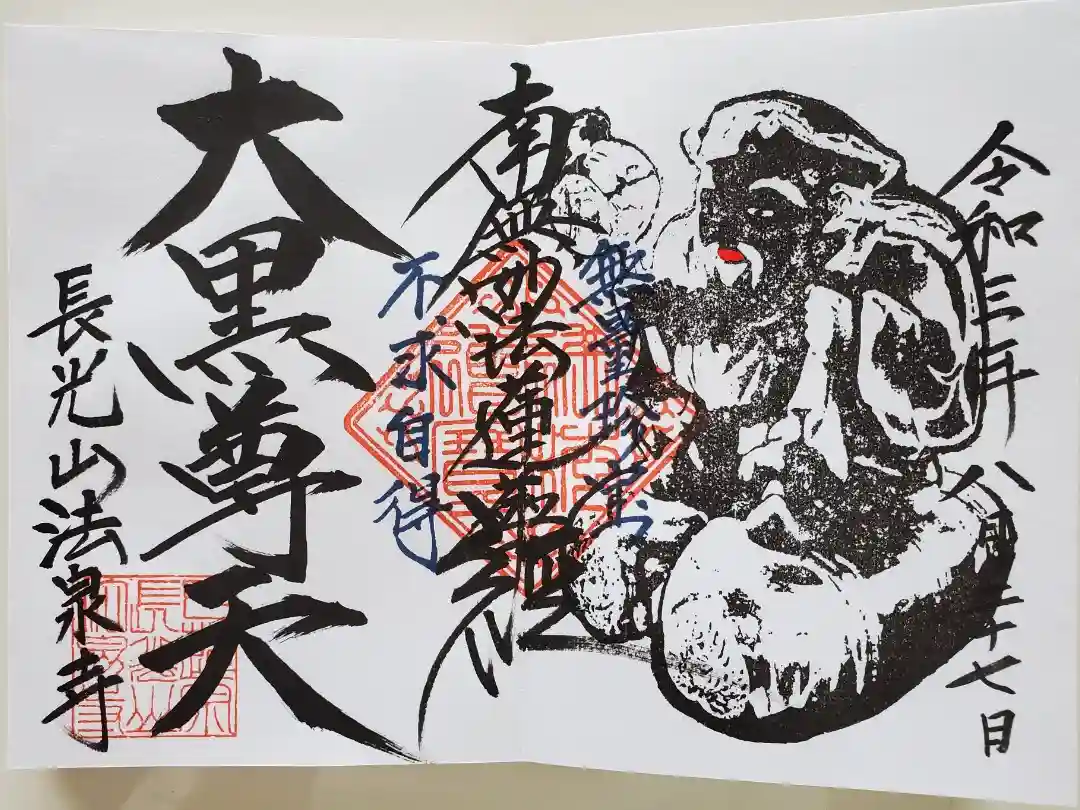 令和三年 八月二十七日
無量珍宝
南無妙法蓮華経
不求自得
大黒尊天
長光山法泉寺